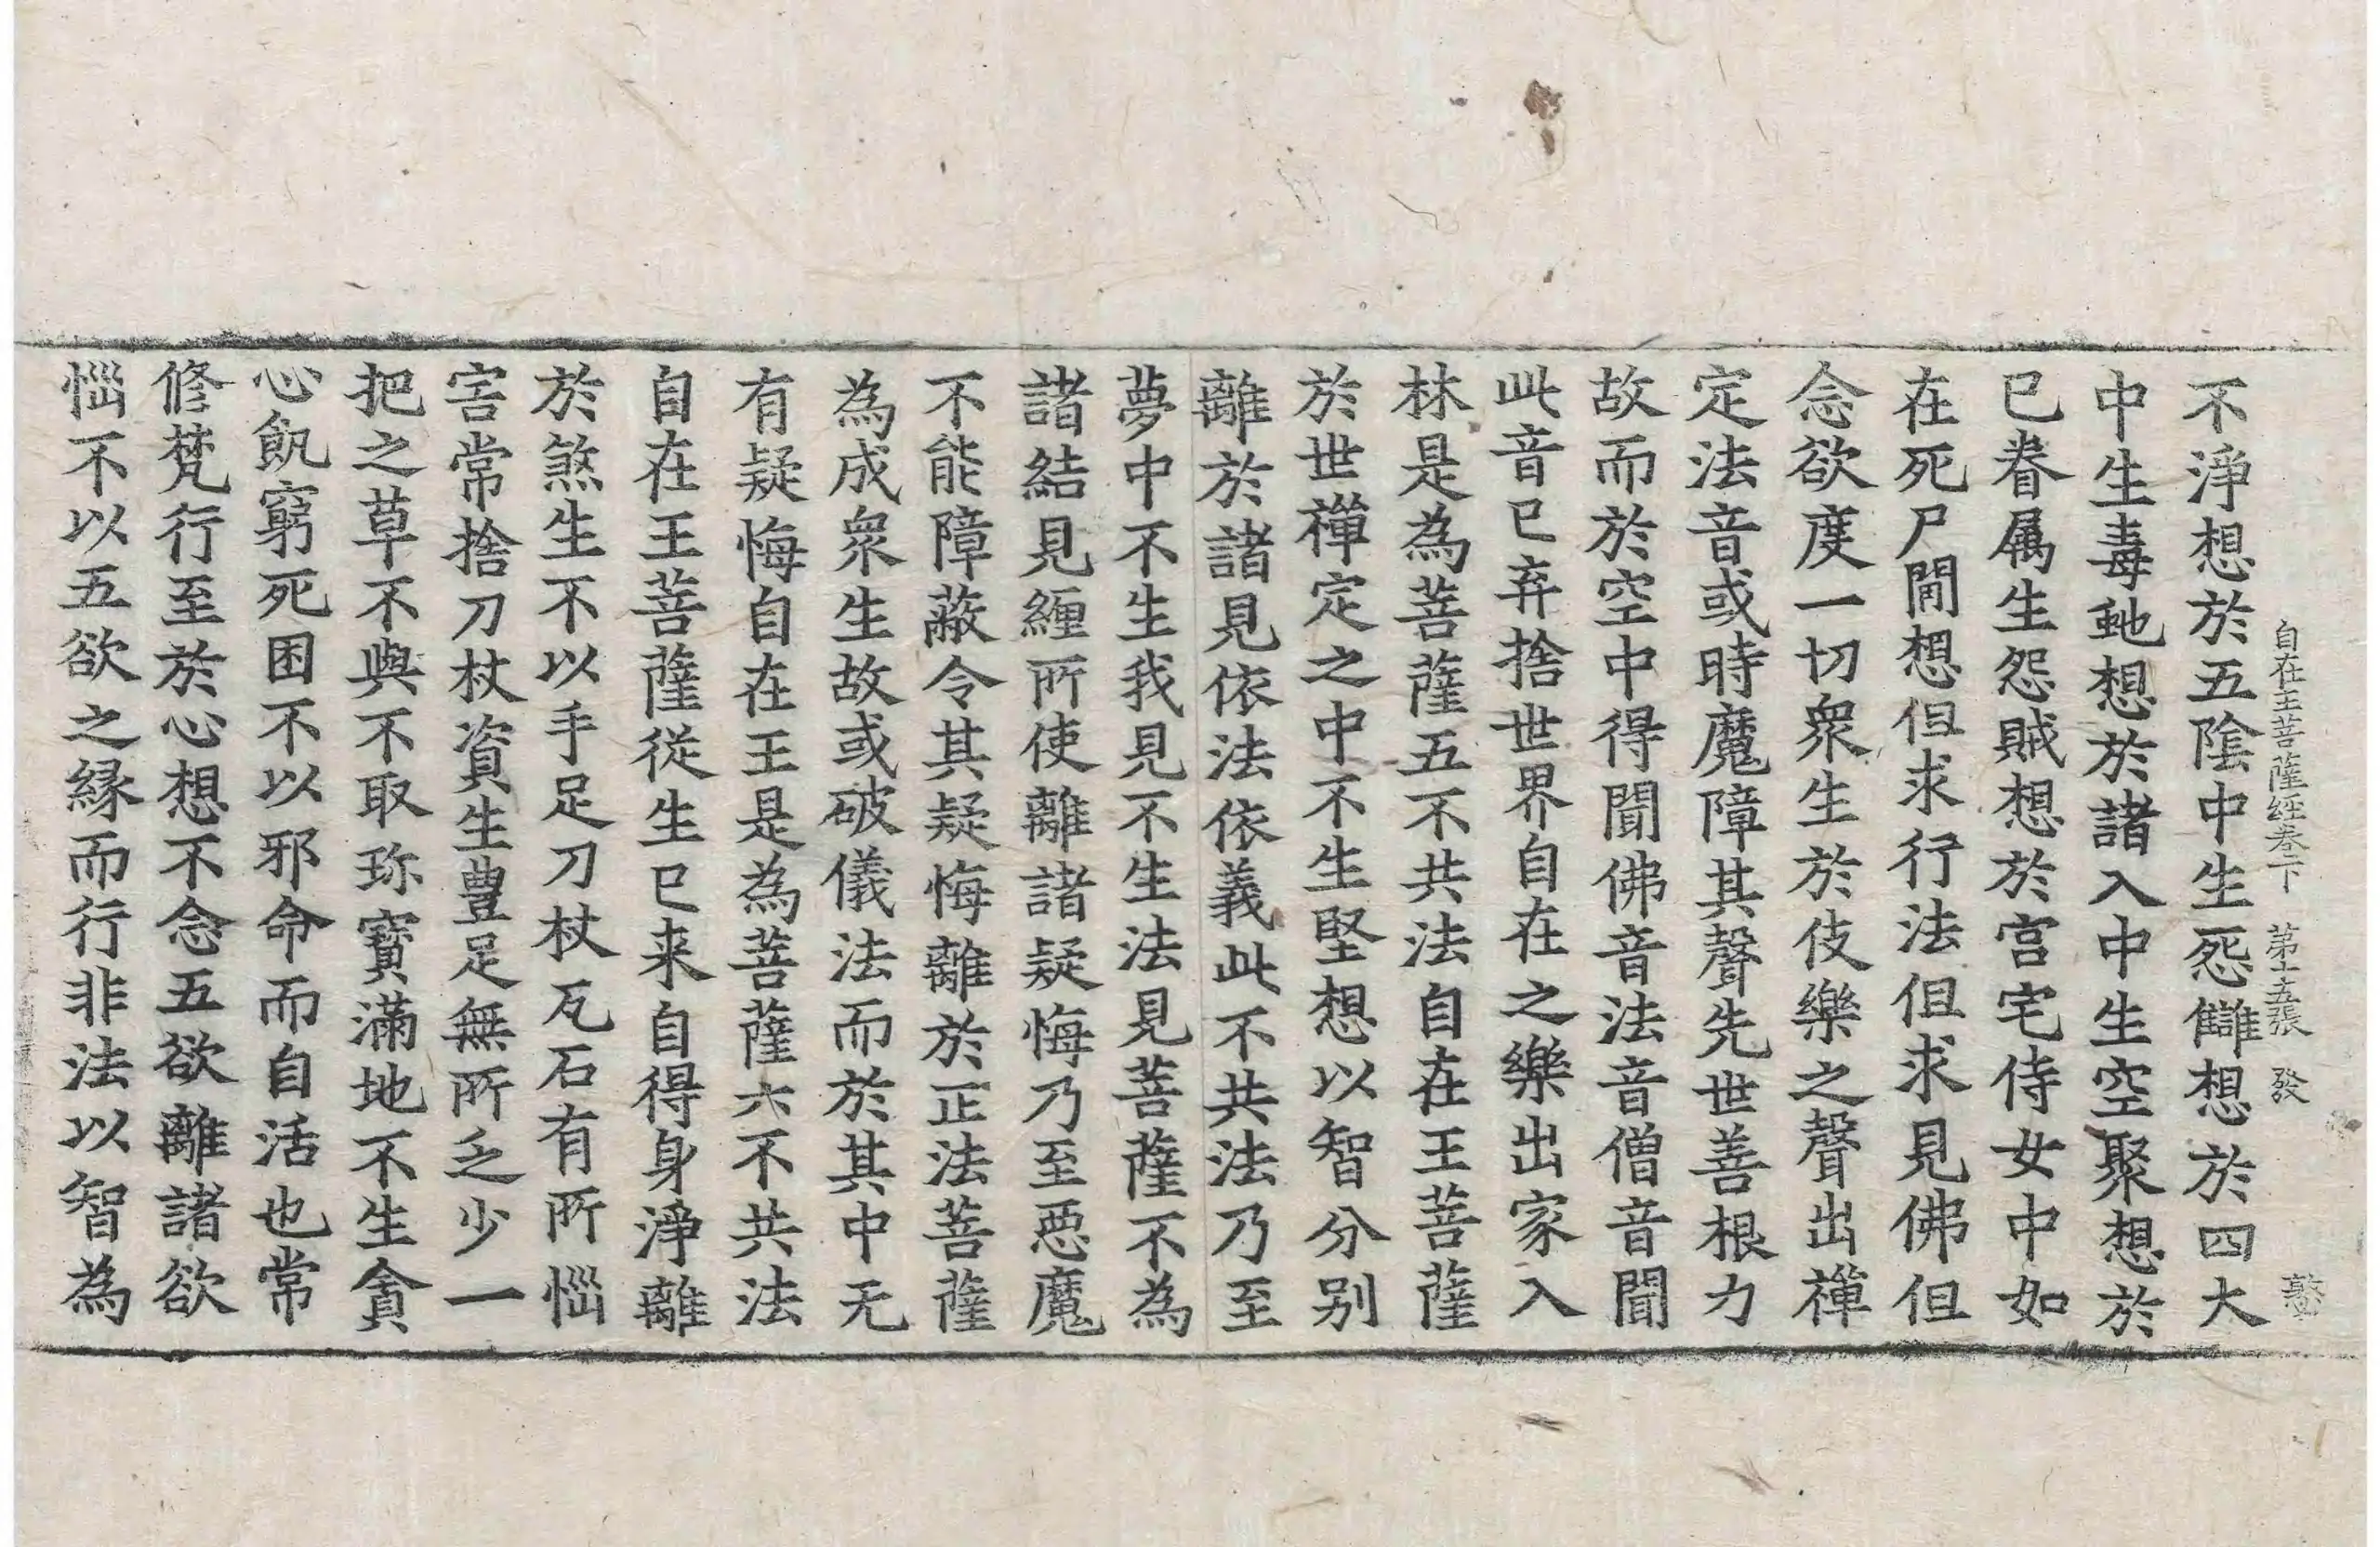 自在王菩薩經卷下　第十五張　發
不淨想於五陰中生怨讎想於四大
中生毒虵想於諸入中生空聚想於
已眷属生怨賊想於宮宅侍女中如
在死尸閒想但求行法但求見佛但
念欲度一切衆生於伎樂之聲出禪
定法音或時魔障其聲先世善根力
故而於空中得聞佛音法音僧音聞
此音已弃捨世界自在之樂出家入
林是為菩薩五不共法自在王菩薩
於世禪定之中不生堅想以智分别
離於諸見依法依義此不共法乃至
夢中不生我見不生法見菩薩不為
諸結見纏所使離諸疑悔乃至惡魔
不能障蔽令其疑悔離於正法菩薩
為成衆生故或破儀法而於其中无
有疑悔自在王是為菩薩六不共法
自在王菩薩從生已来自得身淨離
於煞生不以手足刀杖瓦石有所惱
害常捨刀杖資生豊足無所乏少一
把之草不與不取珎寶滿地不生貪
心飢窮死困不以邪命而自活也常
修梵行至於心想不念五欲離諸欲
惱不以五欲之縁而行非法以智為